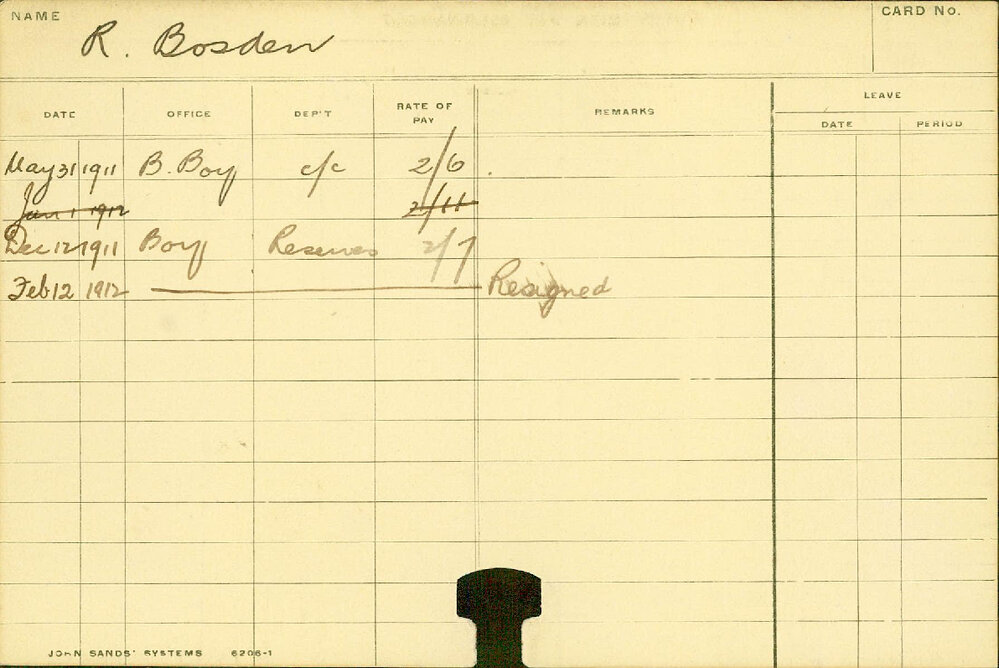 NAME R. Bosden CARD No.
LEAVE
DATE OFFICE DEP'T RATE OF PAY REMARKS DATE PERIOD
May 31 1911 B. Boy c/c 2/6
Jan 1 1912 2/11
Dec 12 1911 Boy Reserves 2/7
Feb 12 1912 Resigned
JOHN SANDS' SYSTEMS 6206-1